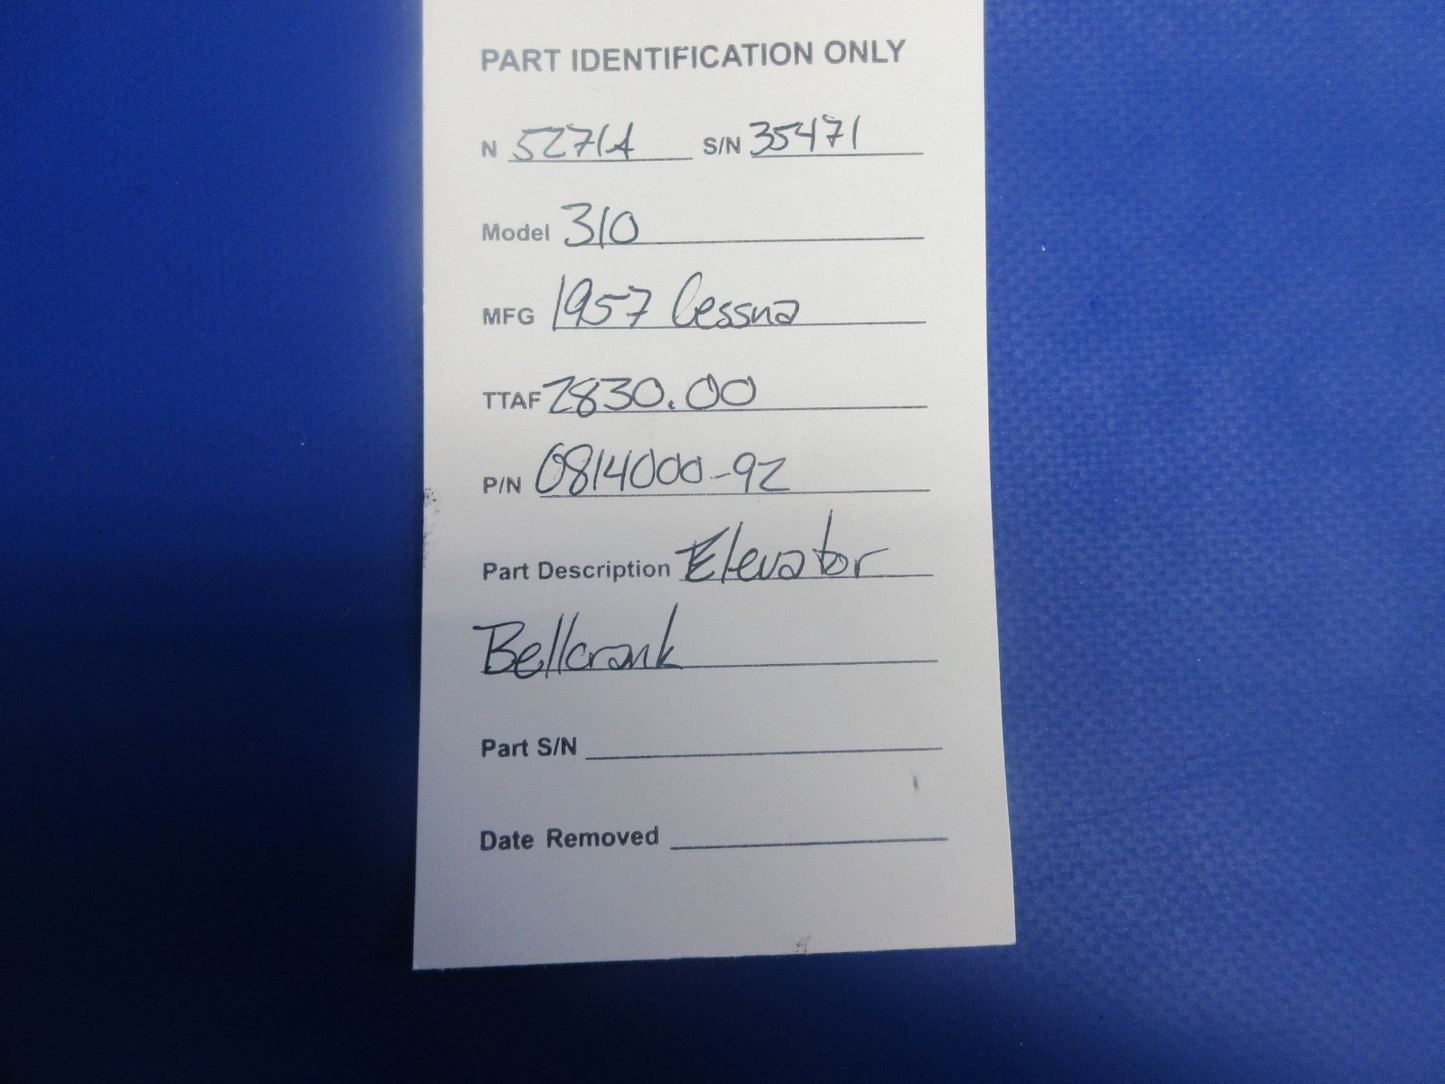 PART IDENTIFICATION ONLY
N 5271A S/N 35471
Model 310
MFG 1957 Cessna
TTAF 2830.00
P/N 0814000-92
Part Description Elevator
Bellcrank
Part S/N
Date Removed